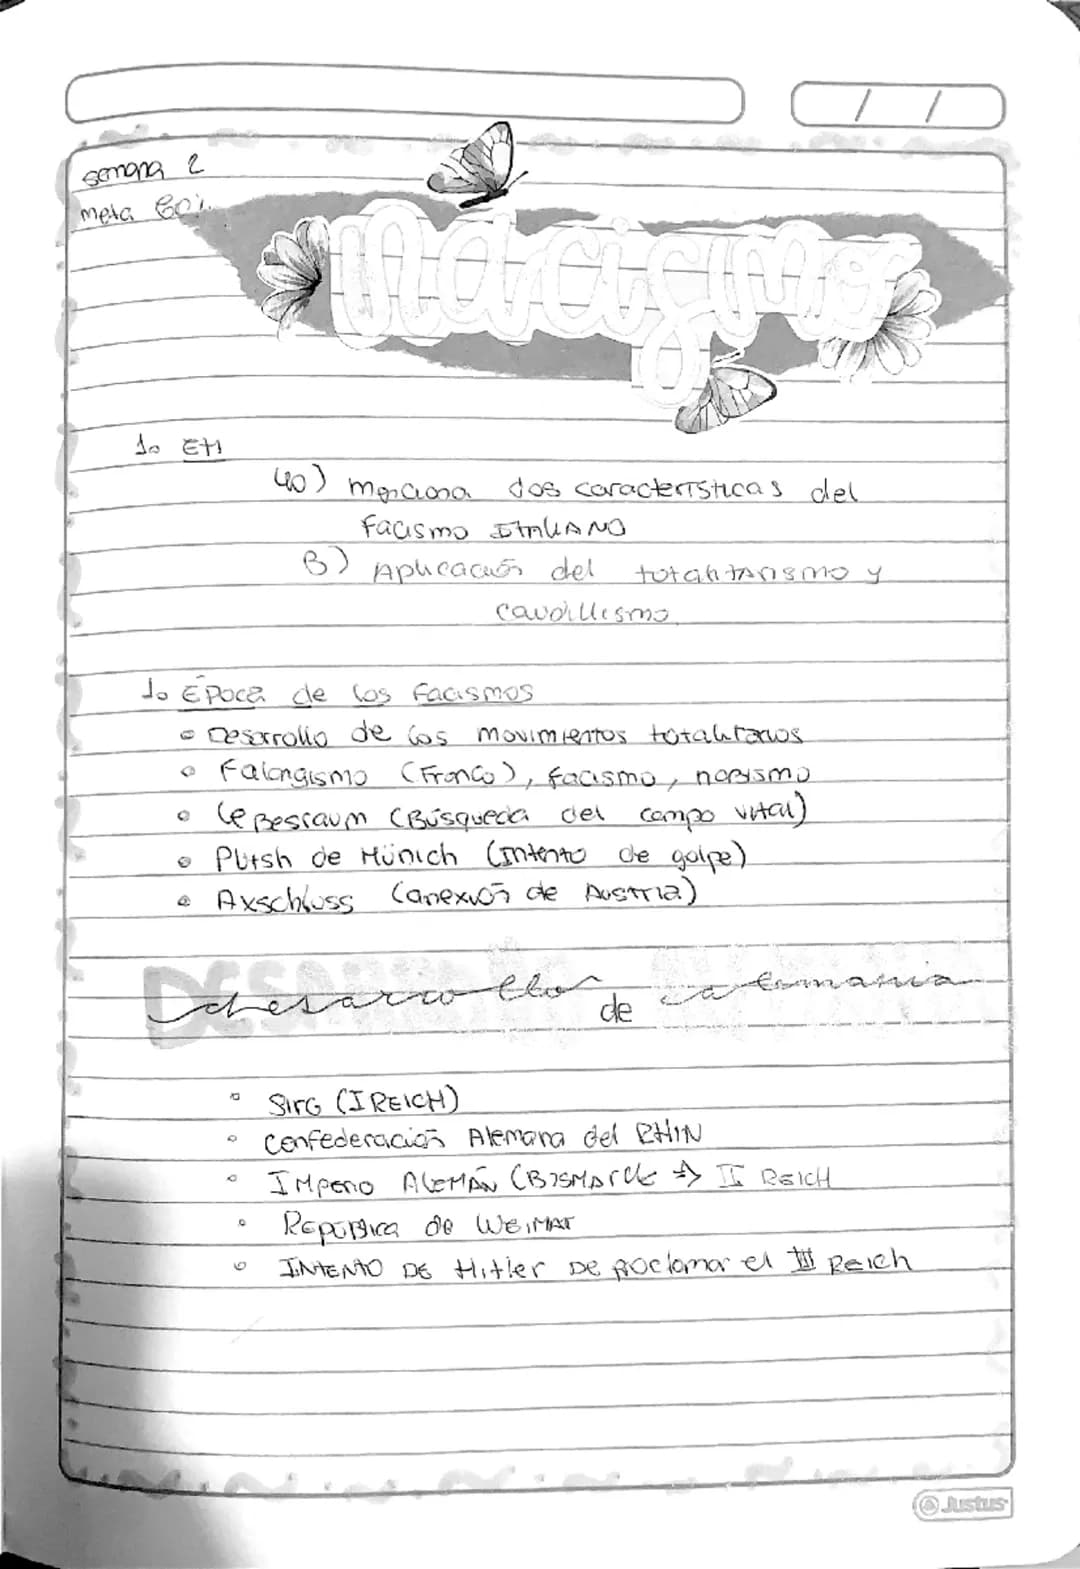 semana 2
meta 60%
nacismo
1. ETI
40) menciona dos características del
Facismo ITALIANO
B) Aplicación del totalitarismo y
caudillismo.
1. Época de los Facismos
Desarrollo de los movimientos totalitarios
Falangismo (Franco), facismo, nazismo
Lebesraum (Búsqueda del campo vital)
Putsh de Múnich (Intento de golpe)
Axschluss (anexión de Austria)
DESARROLLO
desarrollo de alemania
SIRG (I REICH)
Confederación Alemana del RHIN
Imperio ALEMÁN (BISMARCK → II REICH
República de WEIMAR
INTENTO DE Hitler DE proclamar el III Reich
Justus